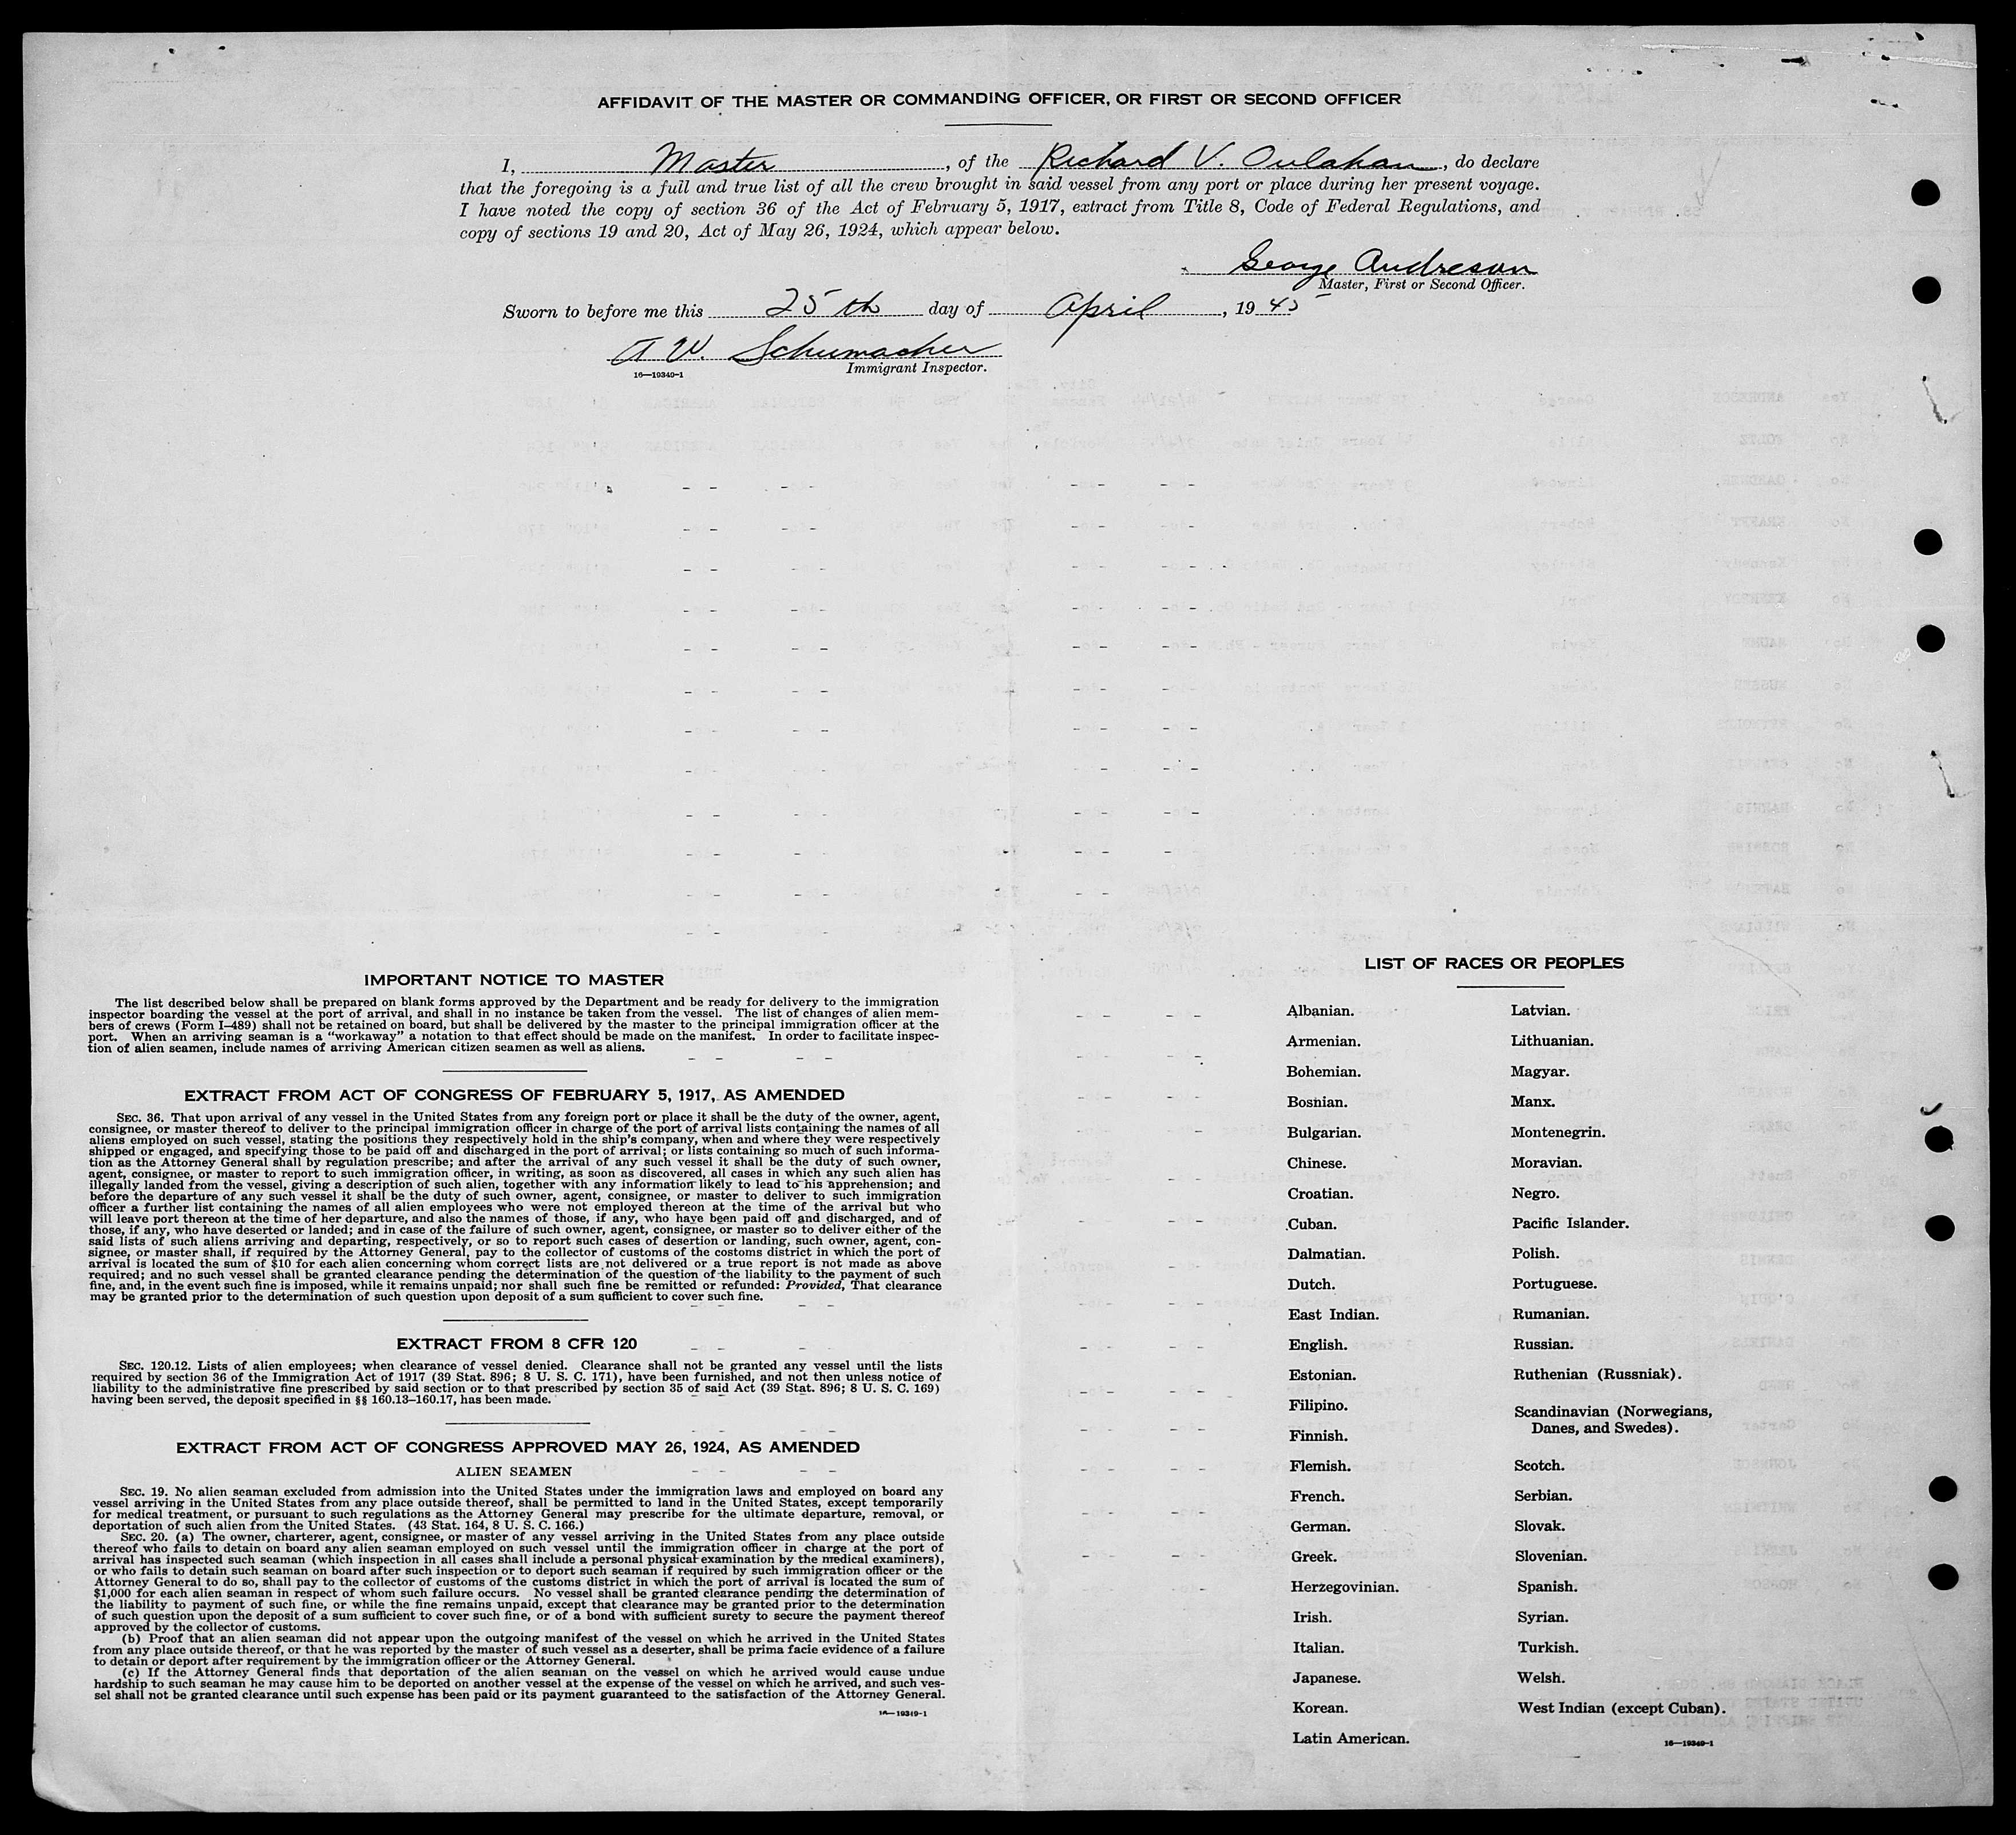 AFFIDAVIT OF THE MASTER OR COMMANDING OFFICER, OR FIRST OR SECOND OFFICER
I, Master, of the Richard V. Oulahan, do declare
that the foregoing is a full and true list of all the crew brought in said vessel from any port or place during her present voyage.
I have noted the copy of section 36 of the Act of February 5, 1917, extract from Title 8, Code of Federal Regulations, and
copy of sections 19 and 20, Act of May 26, 1924, which appear below.
George Andreson
Master, First or Second Officer.
Sworn to before me this 25th day of April, 1945
W. Schumacher
16—19349-1 Immigrant Inspector.
IMPORTANT NOTICE TO MASTER
The list described below shall be prepared on blank forms approved by the Department and be ready for delivery to the immigration
inspector boarding the vessel at the port of arrival, and shall in no instance be taken from the vessel. The list of changes of alien mem-
bers of crews (Form I-489) shall not be retained on board, but shall be delivered by the master to the principal immigration officer at the
port. When an arriving seaman is a “workaway” a notation to that effect should be made on the manifest. In order to facilitate inspec-
tion of alien seamen, include names of arriving American citizen seamen as well as aliens.
EXTRACT FROM ACT OF CONGRESS OF FEBRUARY 5, 1917, AS AMENDED
SEC. 36. That upon arrival of any vessel in the United States from any foreign port or place it shall be the duty of the owner, agent,
consignee, or master thereof to deliver to the principal immigration officer in charge of the port of arrival lists containing the names of all
aliens employed on such vessel, stating the positions they respectively hold in the ship's company, when and where they were respectively
shipped or engaged, and specifying those to be paid off and discharged in the port of arrival; or lists containing so much of such informa-
tion as the Attorney General shall by regulation prescribe; and after the arrival of any such vessel it shall be the duty of such owner,
agent, consignee, or master to report to such immigration officer, in writing, as soon as discovered, all cases in which any such alien has
illegally landed from the vessel, giving a description of such alien, together with any information likely to lead to his apprehension; and
before the departure of any such vessel it shall be the duty of such owner, agent, consignee, or master to deliver to such immigration
officer a further list containing the names of all alien employees who were not employed thereon at the time of the arrival but who
will leave port thereon at the time of her departure, and also the names of those, if any, who have been paid off and discharged, and of
those, if any, who have deserted or landed; and in case of the failure of such owner, agent, consignee, or master so to deliver either of the
said lists of such aliens arriving and departing, respectively, or so to report such cases of desertion or landing, such owner, agent, con-
signee, or master shall, if required by the Attorney General, pay to the collector of customs of the costoms district in which the port of
arrival is located the sum of $10 for each alien concerning whom correct lists are not delivered or a true report is not made as above
required; and no such vessel shall be granted clearance pending the determination of the question of the liability to the payment of such
fine, and, in the event such fine is imposed, while it remains unpaid; nor shall such fine be remitted or refunded: Provided, That clearance
may be granted prior to the determination of such question upon deposit of a sum sufficient to cover such fine.
EXTRACT FROM 8 CFR 120
SEC. 120.12. Lists of alien employees; when clearance of vessel denied. Clearance shall not be granted any vessel until the lists
required by section 36 of the Immigration Act of 1917 (39 Stat. 896; 8 U. S. C. 171), have been furnished, and not then unless notice of
liability to the administrative fine prescribed by said section or to that prescribed by section 35 of said Act (39 Stat. 896; 8 U. S. C. 169)
having been served, the deposit specified in §§ 160.13–160.17, has been made.
EXTRACT FROM ACT OF CONGRESS APPROVED MAY 26, 1924, AS AMENDED
ALIEN SEAMEN
SEC. 19. No alien seaman excluded from admission into the United States under the immigration laws and employed on board any
vessel arriving in the United States from any place outside thereof, shall be permitted to land in the United States, except temporarily
for medical treatment, or pursuant to such regulations as the Attorney General may prescribe for the ultimate departure, removal, or
deportation of such alien from the United States. (43 Stat. 164, 8 U. S. C. 166.)
SEC. 20. (a) The owner, charterer, agent, consignee, or master of any vessel arriving in the United States from any place outside
thereof who fails to detain on board any alien seaman employed on such vessel until the immigration officer in charge at the port of
arrival has inspected such seaman (which inspection in all cases shall include a personal physical examination by the medical examiners),
or who fails to detain such seaman on board after such inspection or to deport such seaman if required by such immigration officer or the
Attorney General to do so, shall pay to the collector of customs of the customs district in which the port of arrival is located the sum of
$1,000 for each alien seaman in respect of whom such failure occurs. No vessel shall be granted clearance pending the determination of
the liability to payment of such fine, or while the fine remains unpaid, except that clearance may be granted prior to the determination
of such question upon the deposit of a sum sufficient to cover such fine, or of a bond with sufficient surety to secure the payment thereof
approved by the collector of customs.
(b) Proof that an alien seaman did not appear upon the outgoing manifest of the vessel on which he arrived in the United States
from any place outside thereof, or that he was reported by the master of such vessel as a deserter, shall be prima facie evidence of a failure
to detain or deport after requirement by the immigration officer or the Attorney General.
(c) If the Attorney General finds that deportation of the alien seaman on the vessel on which he arrived would cause undue
hardship to such seaman he may cause him to be deported on another vessel at the expense of the vessel on which he arrived, and such ves-
sel shall not be granted clearance until such expense has been paid or its payment guaranteed to the satisfaction of the Attorney General.
16—19349-1
LIST OF RACES OR PEOPLES
Albanian.
Armenian.
Bohemian.
Bosnian.
Bulgarian.
Chinese.
Croatian.
Cuban.
Dalmatian.
Dutch.
East Indian.
English.
Estonian.
Filipino.
Finnish.
Flemish.
French.
German.
Greek.
Herzegovinian.
Irish.
Italian.
Japanese.
Korean.
Latin American.
Latvian.
Lithuanian.
Magyar.
Manx.
Montenegrin.
Moravian.
Negro.
Pacific Islander.
Polish.
Portuguese.
Rumanian.
Russian.
Ruthenian (Russniak).
Scandinavian (Norwegians,
Danes, and Swedes).
Scotch.
Serbian.
Slovak.
Slovenian.
Spanish.
Syrian.
Turkish.
Welsh.
West Indian (except Cuban).
16—19349-1